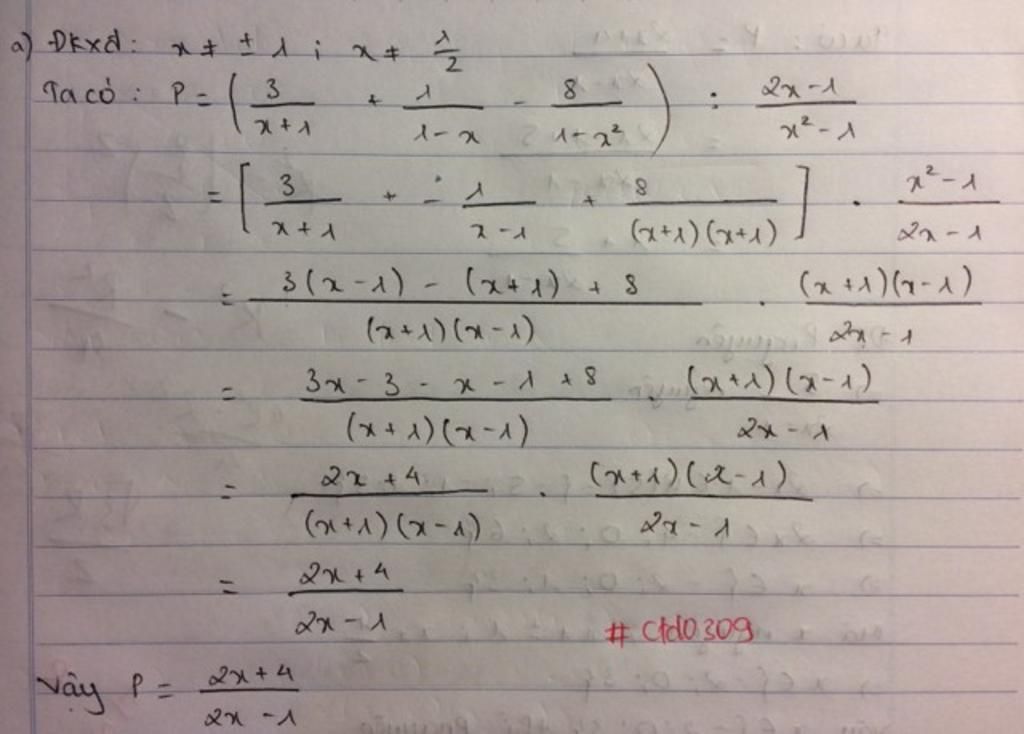 a) ĐKXĐ: x ≠ ± 1 ; x ≠ 1/2
Ta có: P = ( 3/(x+1) + 1/(1-x) - 8/(1-x²) ) : (2x-1)/(x²-1)
= [ 3/(x+1) + - 1/(x-1) + 8/((x+1)(x+1)) ] . (x²-1)/(2x-1)
= (3(x-1) - (x+1) + 8)/((x+1)(x-1)) . ((x+1)(x-1))/(2x-1)
= (3x-3-x-1+8)/((x+1)(x-1)) . ((x+1)(x-1))/(2x-1)
= (2x+4)/((x+1)(x-1)) . ((x+1)(x-1))/(2x-1)
= (2x+4)/(2x-1)
# Ctd0309
Vậy P = (2x+4)/(2x-1)